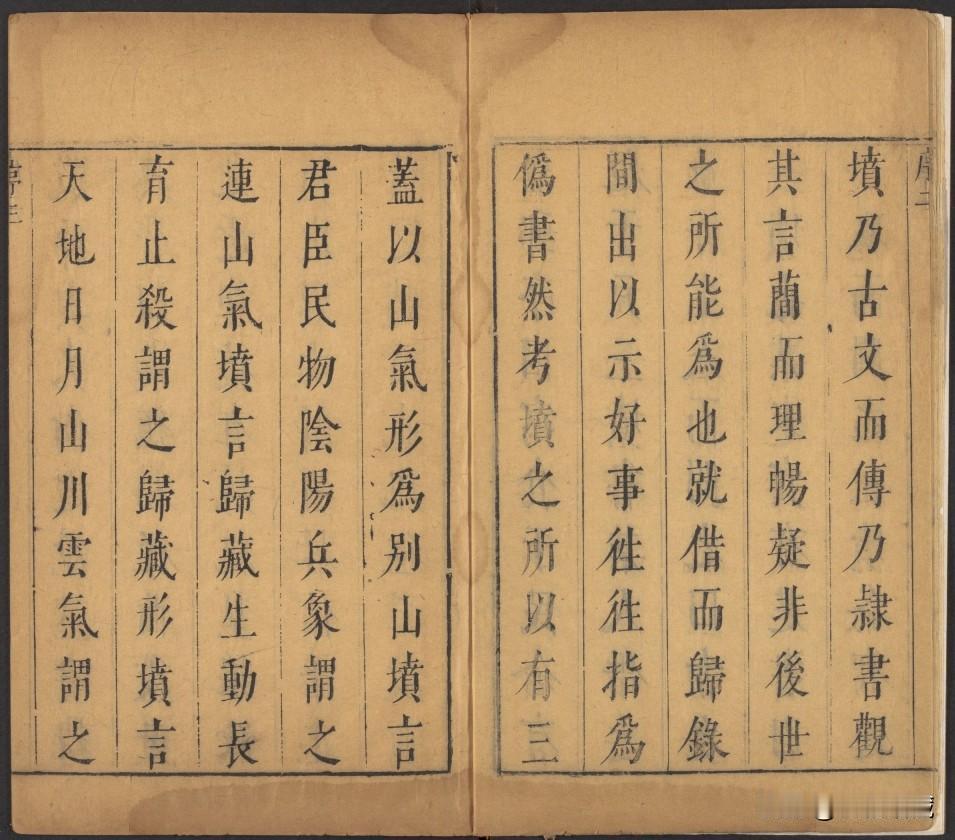 序二
墳乃古文而傳乃隷書觀
其言蕳而理暢疑非後世
之所能爲也就借而歸錄
間出以示好事徃徃指爲
僞書然考墳之所以有三
蓋以山氣形爲别山墳言
君臣民物陰陽兵象謂之
連山氣墳言歸藏生動長
育止殺謂之歸藏形墳言
天地日月山川雲氣謂之
序三